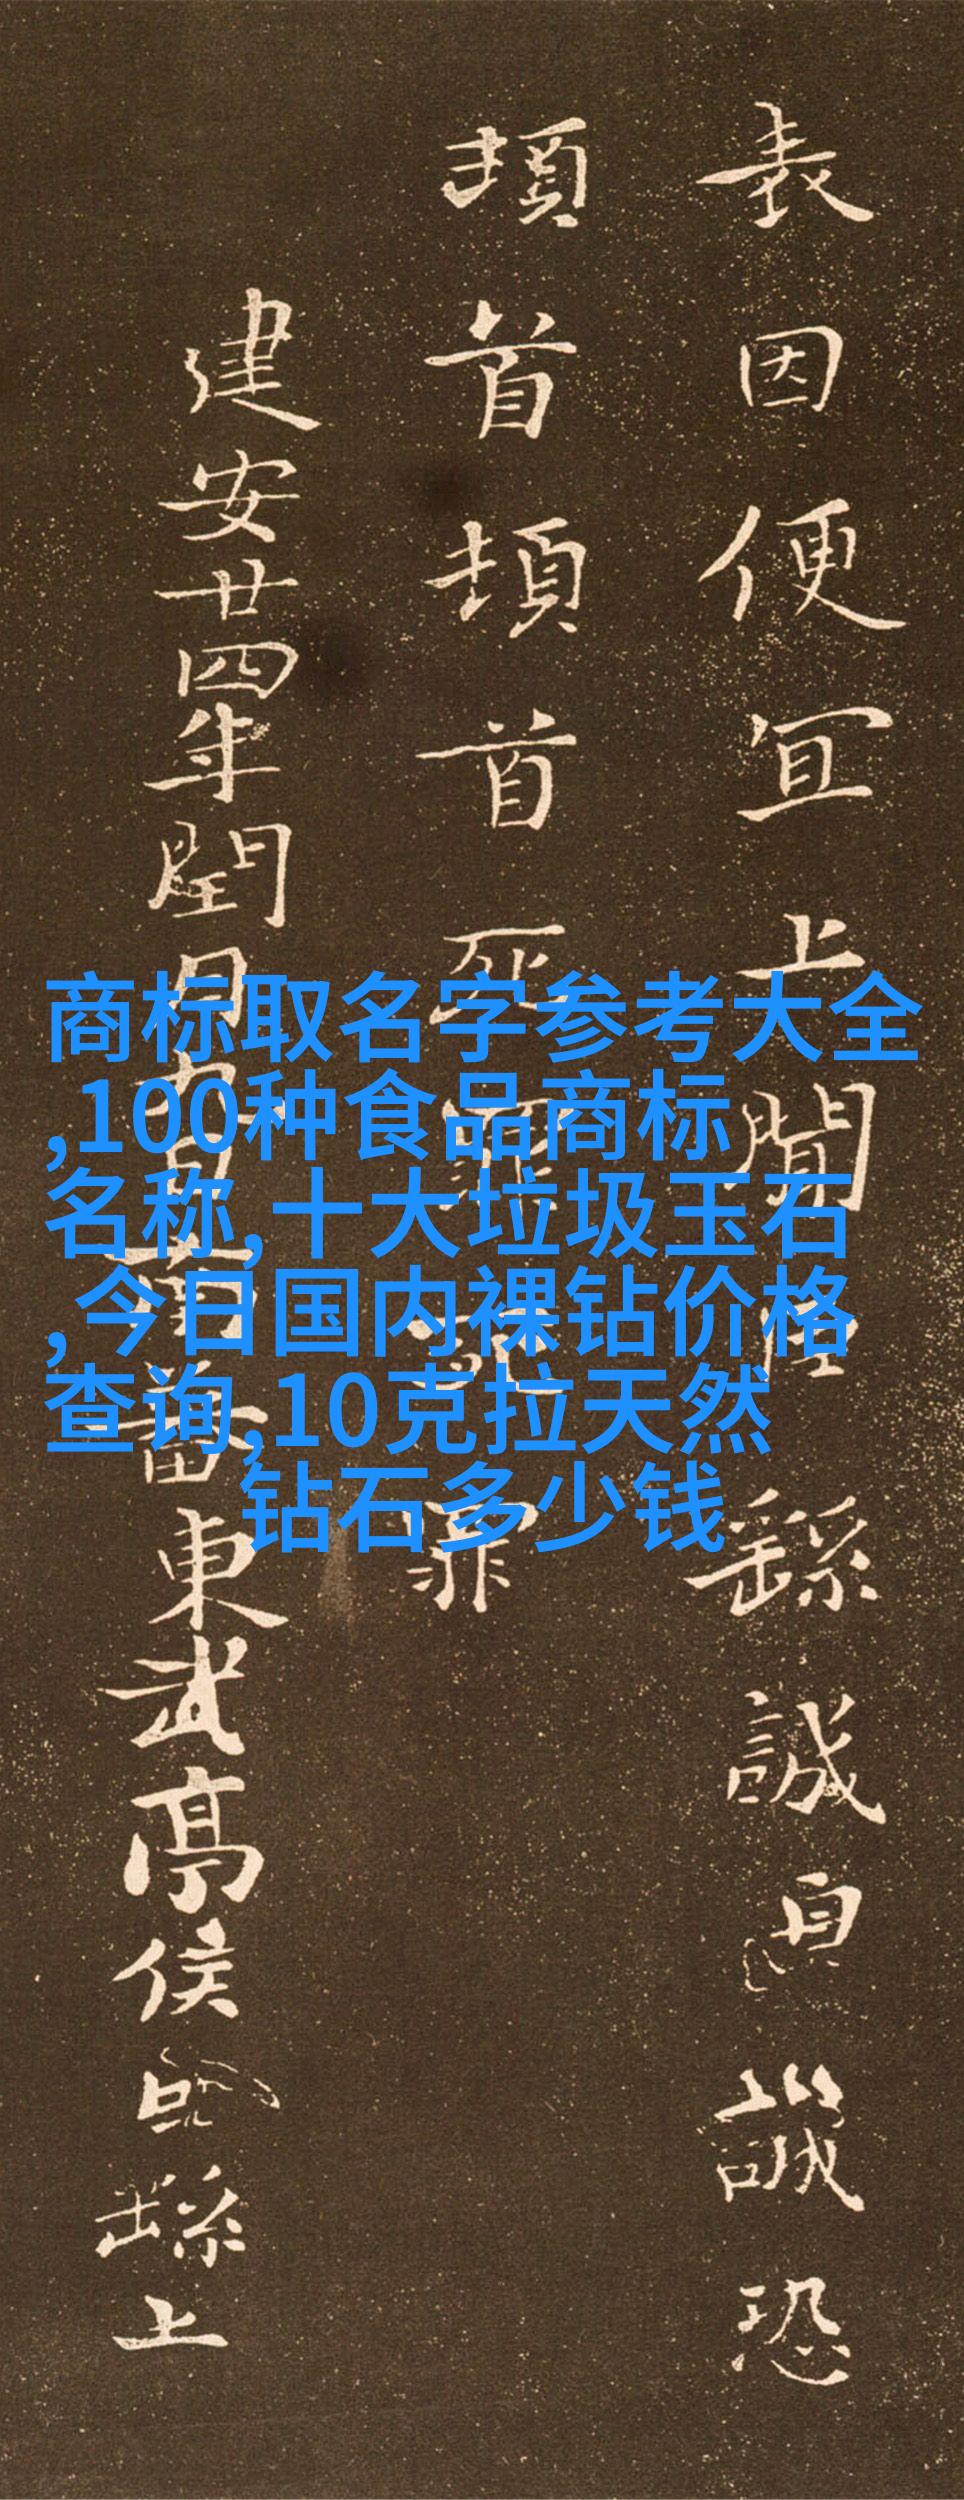 表因便宜上聞臣繇誠自誠恐
頓首頓首死罪死罪
建安廿四年閏月九日南蕃東武亭侯臣繇上
商标取名字参考大全
,100种食品商标
名称,十大垃圾玉石
,今日国内裸钻价格
查询,10克拉天然
钻石多少钱